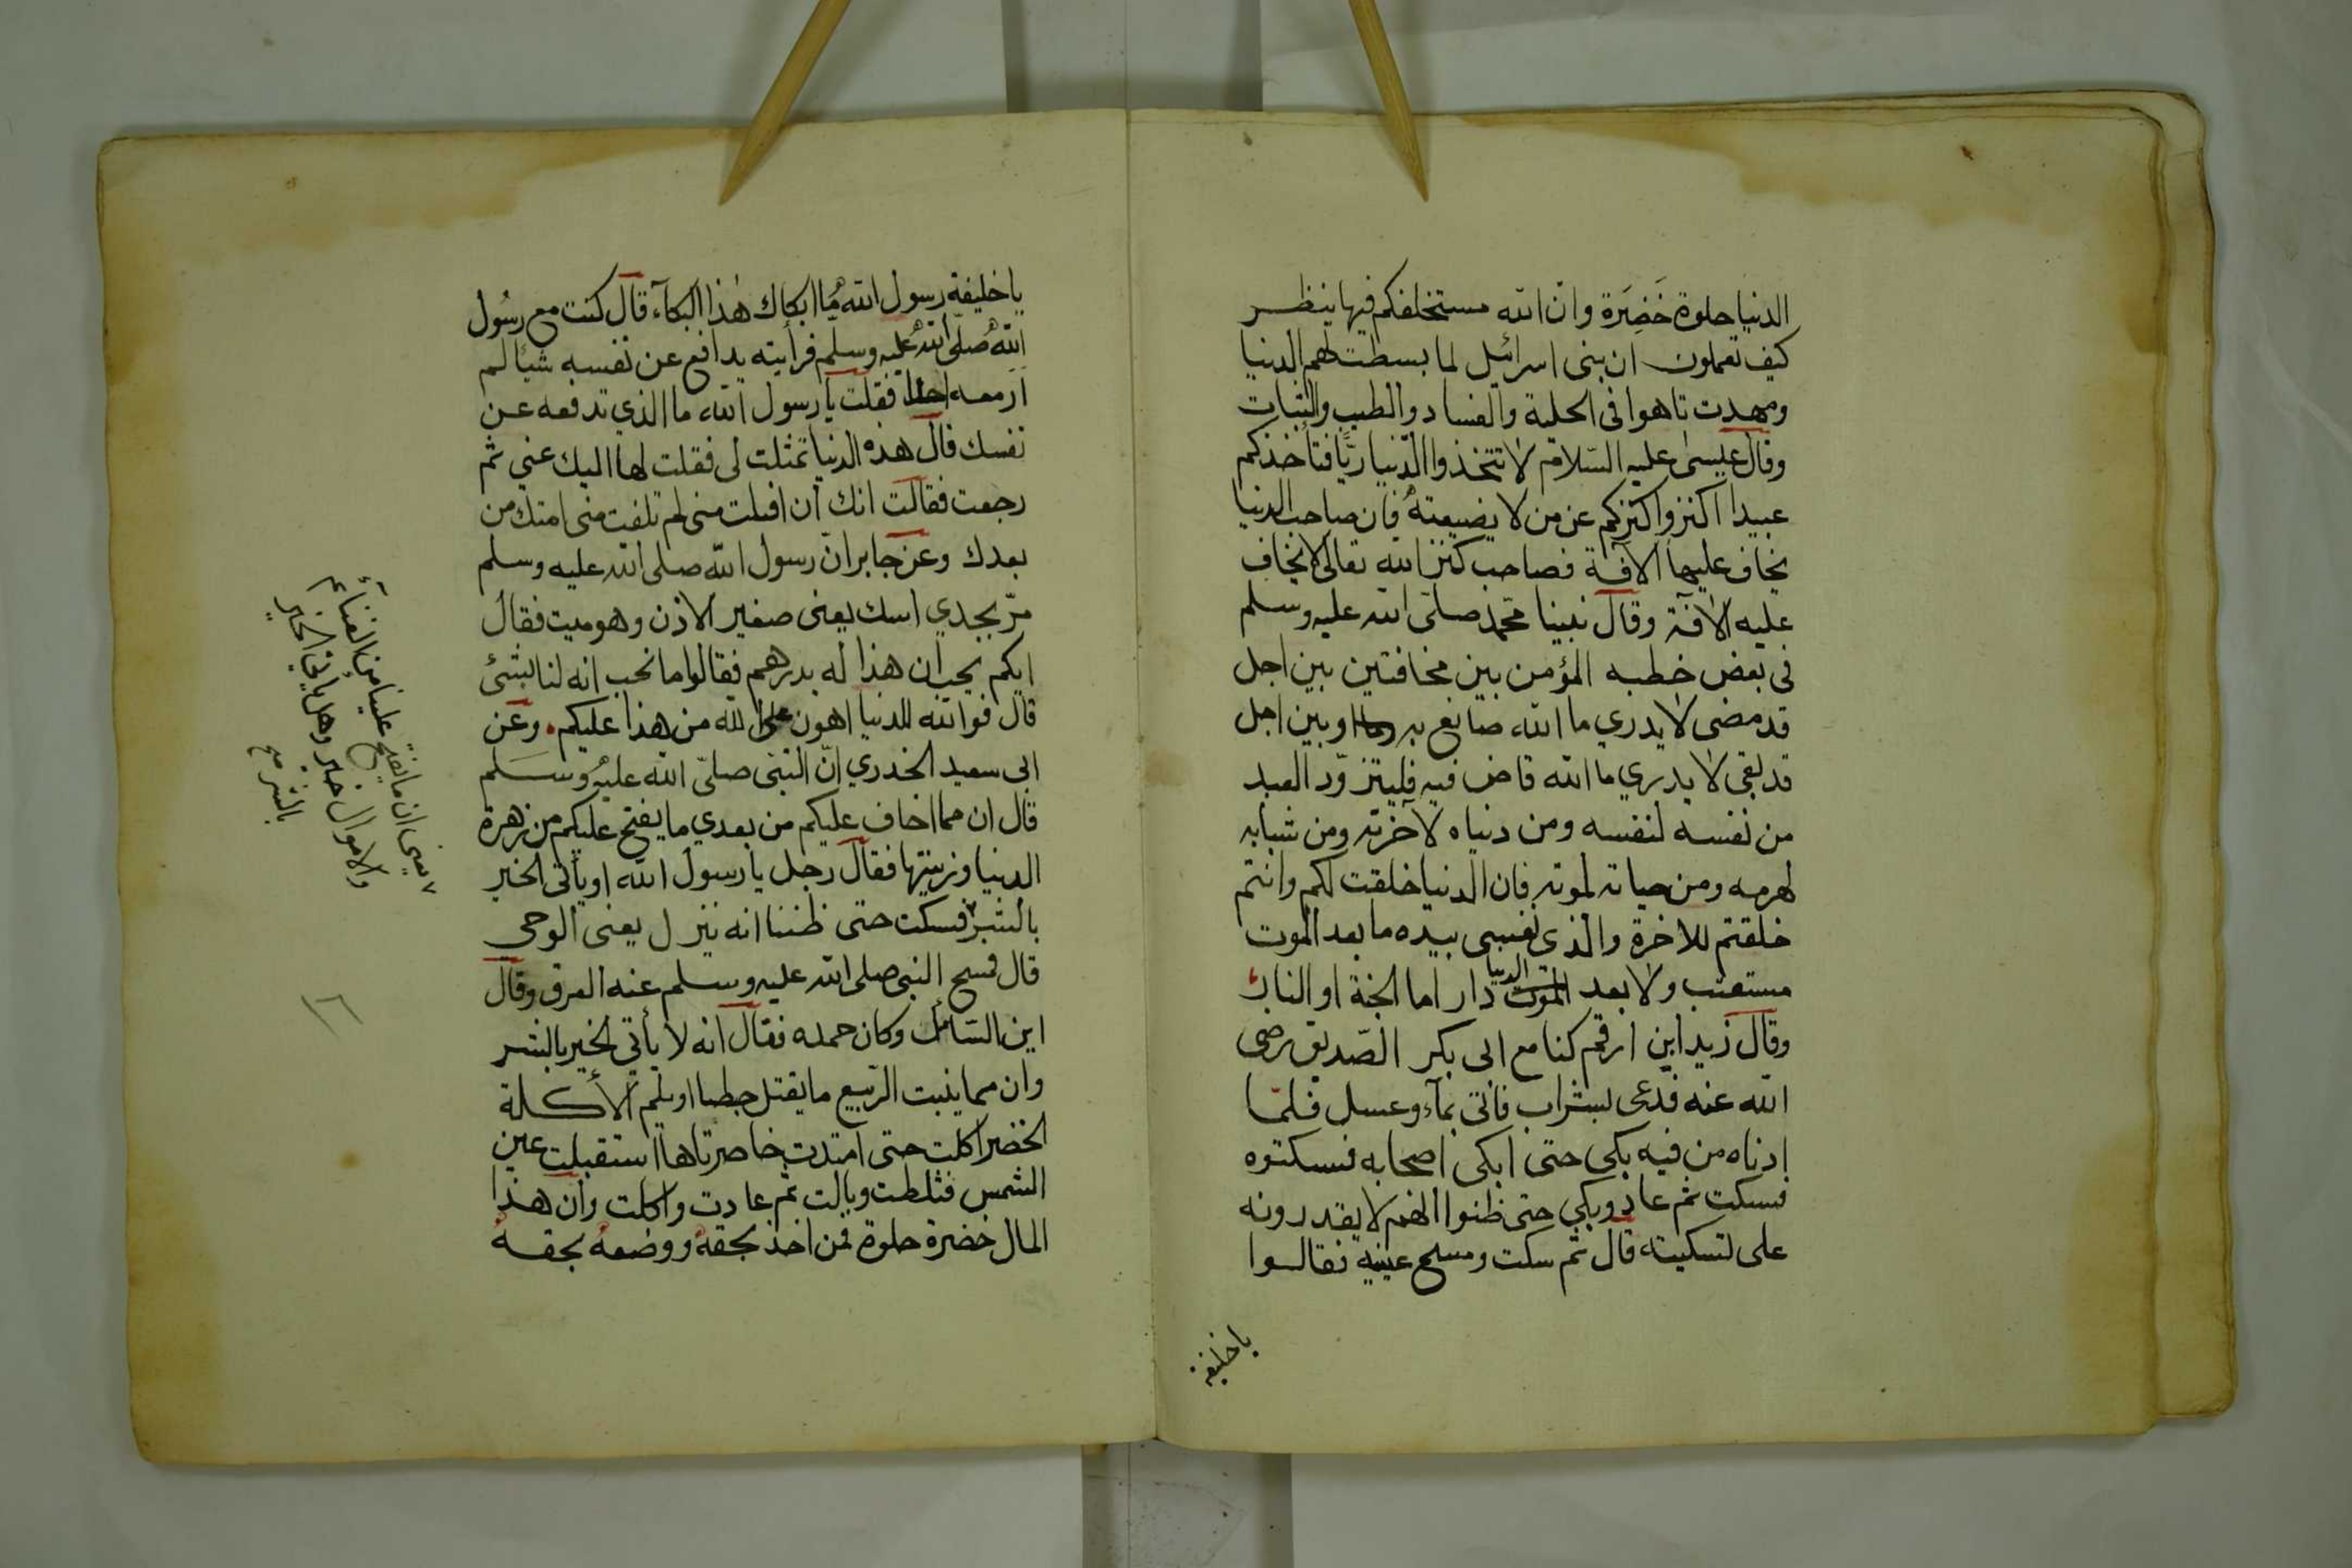 الدنيا حلوة خَضِرَة وانّ الله مستخلفكم فيها ينظر
كيف تعملون ان بنى اسرائيل لما بسطت لهم الدنيا
ومهدت تاهوا فى الحلية والفساد والطيب والثياب
وقال عيسى عليه السّلام لا تتخذوا الدّنيا ربًّا فتأخذكم
عبيدا اكنزوا كنزكم عن من لا يضيعهُ فان صاحب الدنيا
يخاف عليها الآفة فصاحب كنز الله تعالى لا يخاف
عليه الآفة وقال نبينا محمّد صلى الله عليه وسلم
فى بعض خطبه المؤمن بين مخافتين بين اجل
قد مضى لا يدري ما الله صانع به وبين اجل
قد بقى لا يدري ما الله قاض فيه فليتزوّد العبد
من نفسه لنفسه ومن دنياه لآخرته ومن شبابه
لهرمه ومن حياته لموته فان الدنيا خلقت لكم وانتم
خلقتم للاخرة والذى نفسى بيده ما بعد الموت
مستعتب ولا بعد الدنيا دار اما الجنة او النار
وقال زيد ابن ارقم كنا مع ابى بكر الصّديق رضى
الله عنه فدعى بشراب فاتى بمآء وعسل فلمّا
ادناه من فيه بكى حتى ابكى اصحابه فسكتوه
فسكت ثم عاد وبكى حتى ظنوا انهم لا يقدرونه
على تسكيته قال ثم سكت ومسح عينيه فقالوا
يا خليفة
يا خليفة رسول الله ما ابكاك هذا البكآء قال كنت مع رسُول
الله صلّى الله عليه وسلّم فرأيته يدافع عن نفسه شيئا لم
ار معه احدا فقلت يا رسول الله ما الذي تدفعه عن
نفسك قال هذه الدنيا تمثلت لى فقلت لها اليك عني ثم
رجعت فقالت انك ان افلت منى لم تلفت منى امتك من
بعدك وعن جابر انّ رسول الله صلى الله عليه وسلم
مرّ بجدي اسك يعنى صغير الاذن وهو ميت فقال
ايكم يحب ان هذا له بدرهم فقالوا ما نحب انه لنا بشئ
قال فوالله للدنيا اهون على الله من هذا عليكم وعن
ابى سعيد الخدري انّ النبى صلىّ الله عليه وسَلم
قال ان مما اخاف عليكم من بعدي ما يفتح عليكم من زهرة
الدنيا وزينتها فقال رجل يا رسول الله او يأتى الخير
بالشر فسكت حتى ظننا انه ينزل يعنى الوحي
قال فمسح النبى صلى الله عليه وسلم عنه العرق وقال
اين السّائل وكان حمده فقال انه لا يأتي الخير بالشر
وان مما ينبت الرّبيع ما يقتل حبطا او يلم الأكلة
الخضر اكلت حتى امتدت خاصرتاها استقبلت عين
الشمس فثلطت وبالت ثم عادت واكلت وان هذا
المال خضرة حلوة فمن اخذ بحقهُ ووضعهُ بحقهُ
يعني ان ما يفتح علينا من الغنائم
والاموال خير وهل يأتي الخير
بالشر